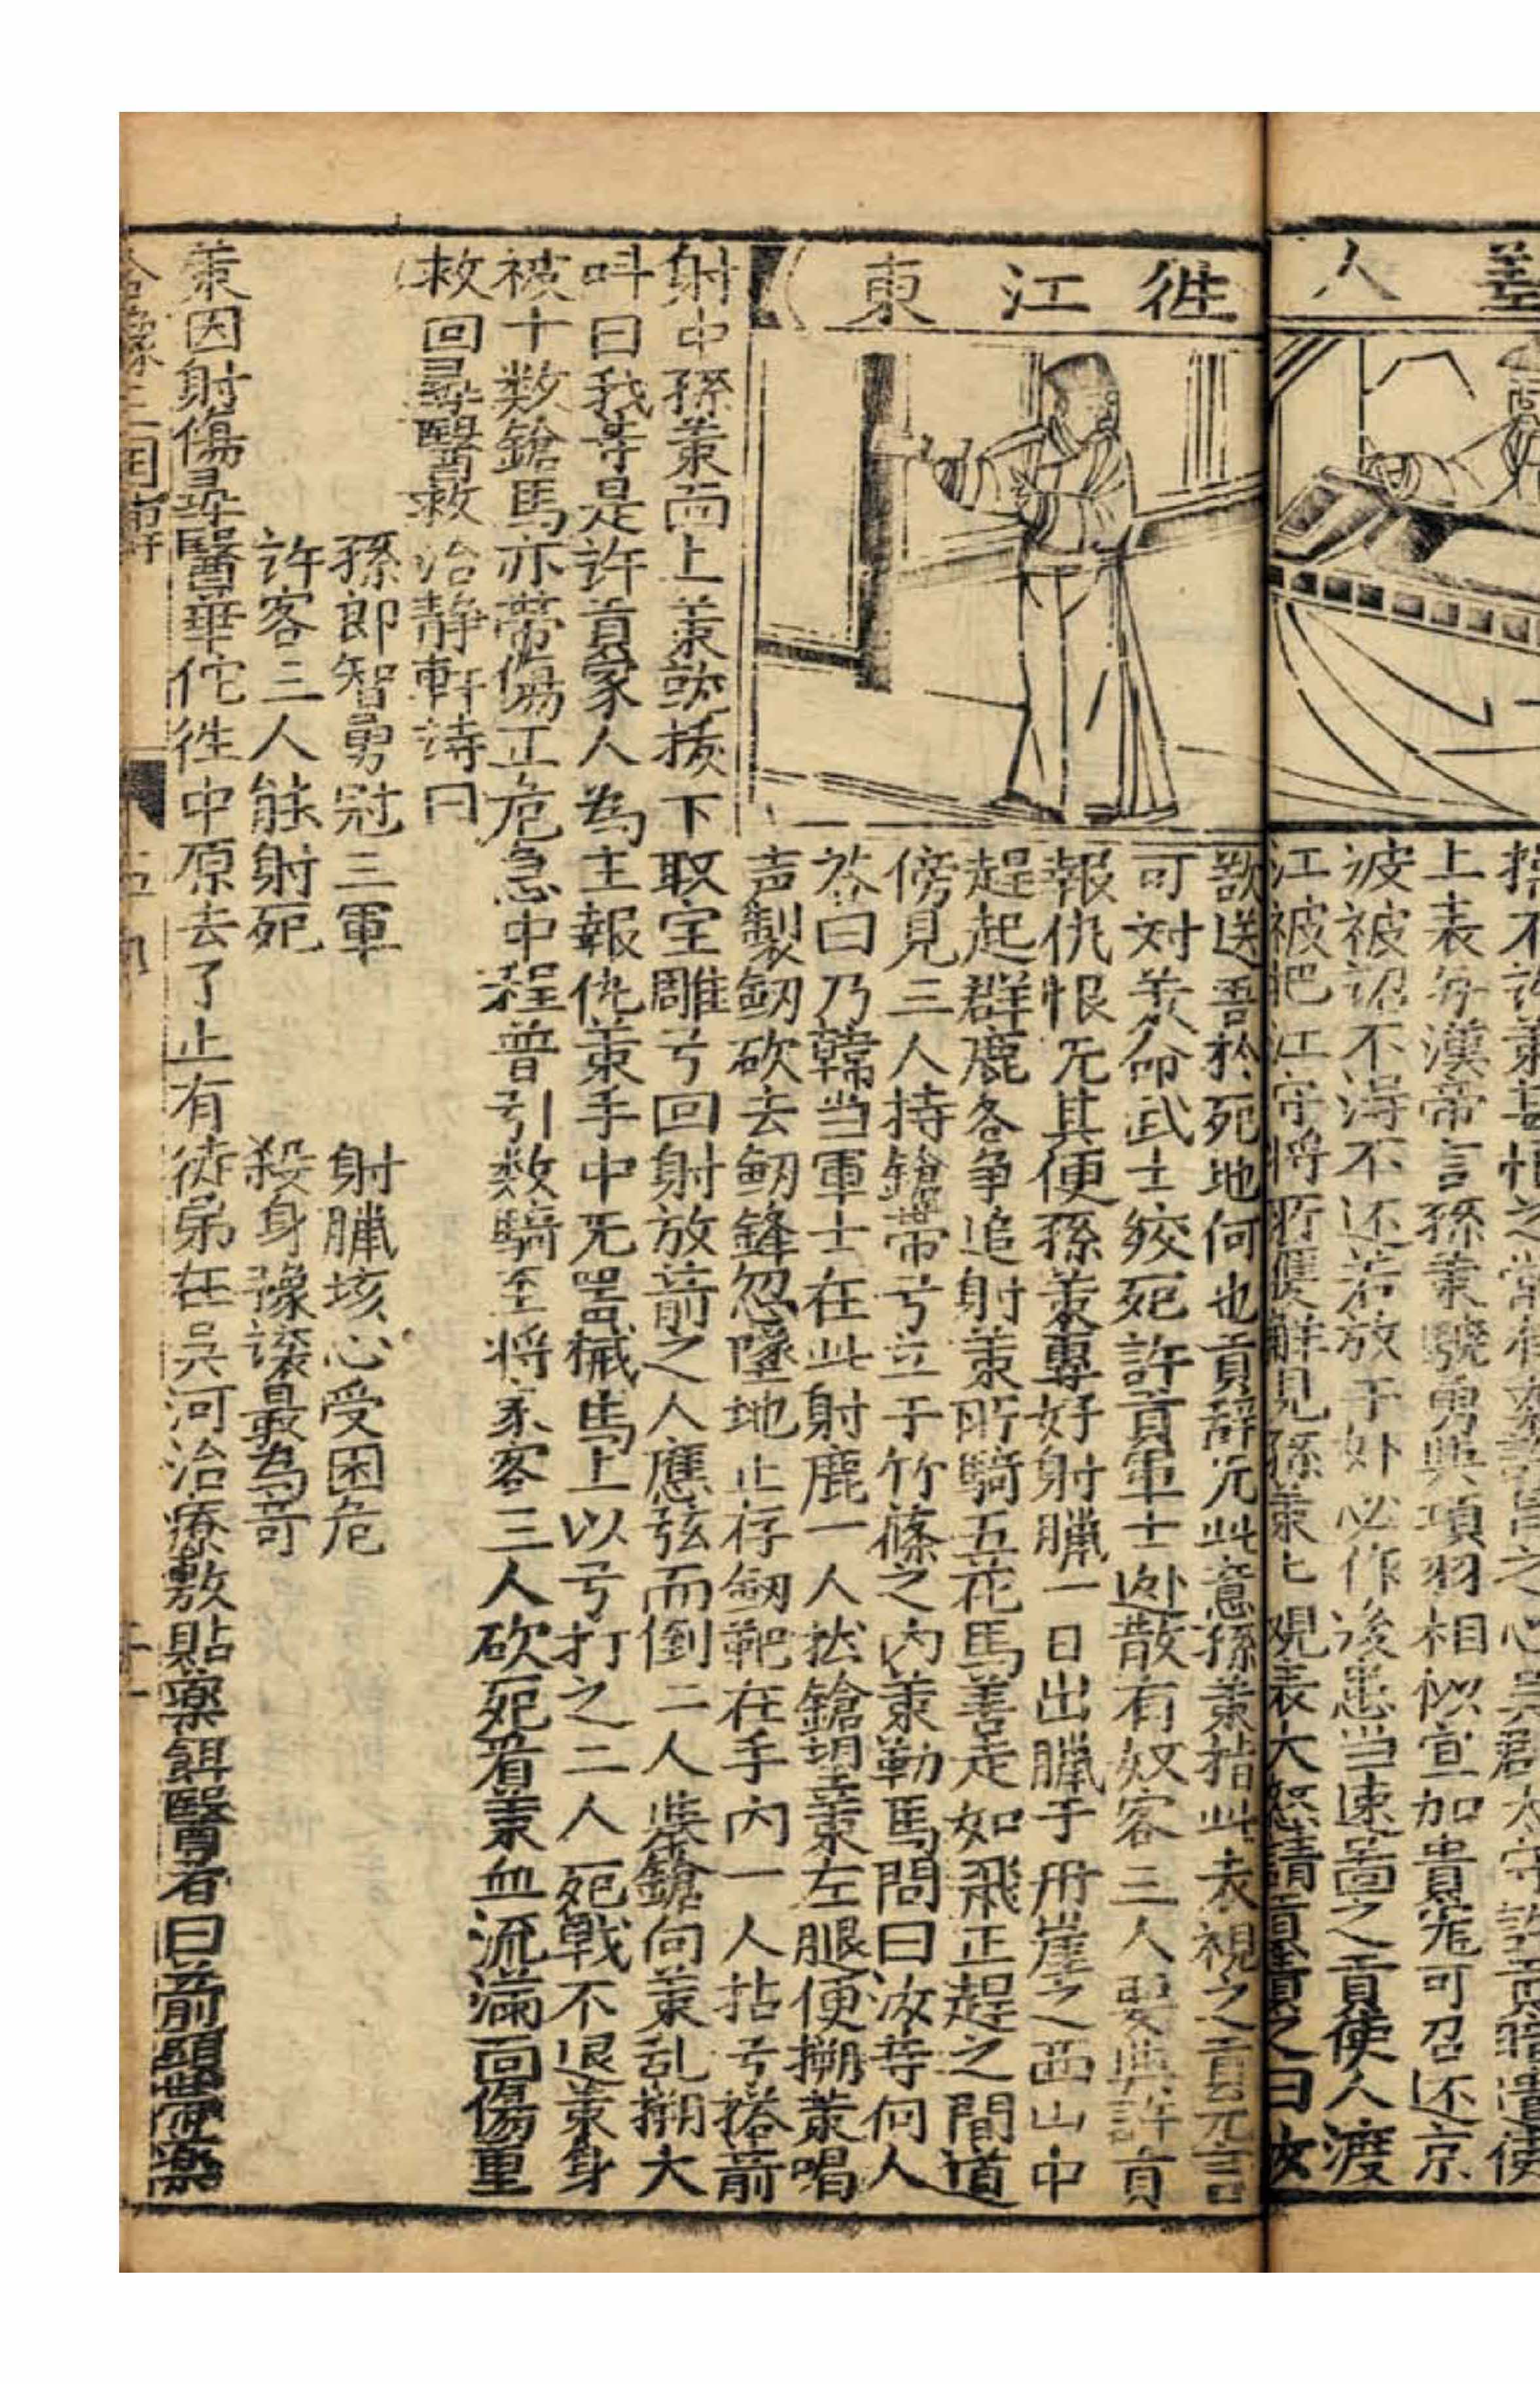 善人
徃江東
上表与漢帝言孫策驍勇與項羽相似宜加貴寵可召还京
彼被詔不淂不还若放于外必作後患当速啚之貢使人渡
江被把江守将所獲解見孫策七观表大怒請貢責之曰汝
欲送吾於死地何也貢辞兂此意孫策指此表視之貢无言
可对策命武士絞死許貢軍士迯散有奴客三人要與許貢
報仇恨兂其便孫策專好射臘一日出臘于丹崖之西山中
趕起群鹿各争追射策所騎五花馬善走如飛正趕之間道
傍見三人持鎗带弓立于竹篠之内策勒馬問曰汝等何人
答曰乃韓当軍士在此射鹿一人拔鎗望策左腿便搠策唱
声製劒砍去劒鋒忽墜地止存劒靶在手内一人拈弓搭箭
射中孫策面上策就㧞下取宝雕弓回射放箭之人應弦而倒二人举鎗向策乱搠大
呌曰我等是許貢家人為主報仇策手中旡噐械馬上以弓打之二人死戰不退策身
被十数鎗馬亦带傷正危急中程普引数騎至将家客三人砍死看策血流滿面傷重
救回尋醫救治静軒诗曰
孫郎智勇冠三軍 射臘垓心受困危
許客三人能射死 殺身豫讓最為奇
策因射傷尋醫華佗徃中原去了止有徒弟在吳河治療敷貼藥餌醫者曰箭頭有藥